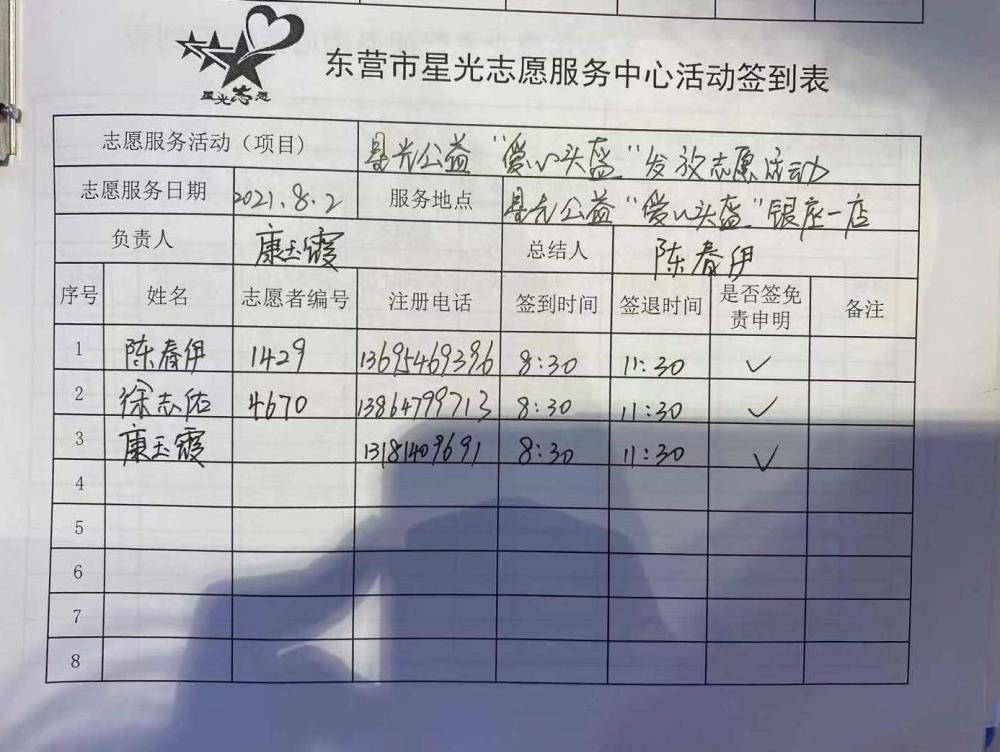 星光志愿
东营市星光志愿服务中心活动签到表
志愿服务活动（项目） 星光公益“爱心头盔”发放志愿活动
志愿服务日期 2021.8.2 服务地点 星光公益“爱心头盔”银座一店
负责人 康玉霞 总结人 陈春伊
序号 姓名 志愿者编号 注册电话 签到时间 签退时间 是否签免责申明 备注
1 陈春伊 1429 13695469396 8:30 11:30 ✓
2 徐志佑 4670 13864799713 8:30 11:30 ✓
3 康玉霞 13181409691 8:30 11:30 ✓
4
5
6
7
8